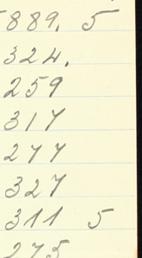 889. 5
324.
259
317
277
327
311 5
275